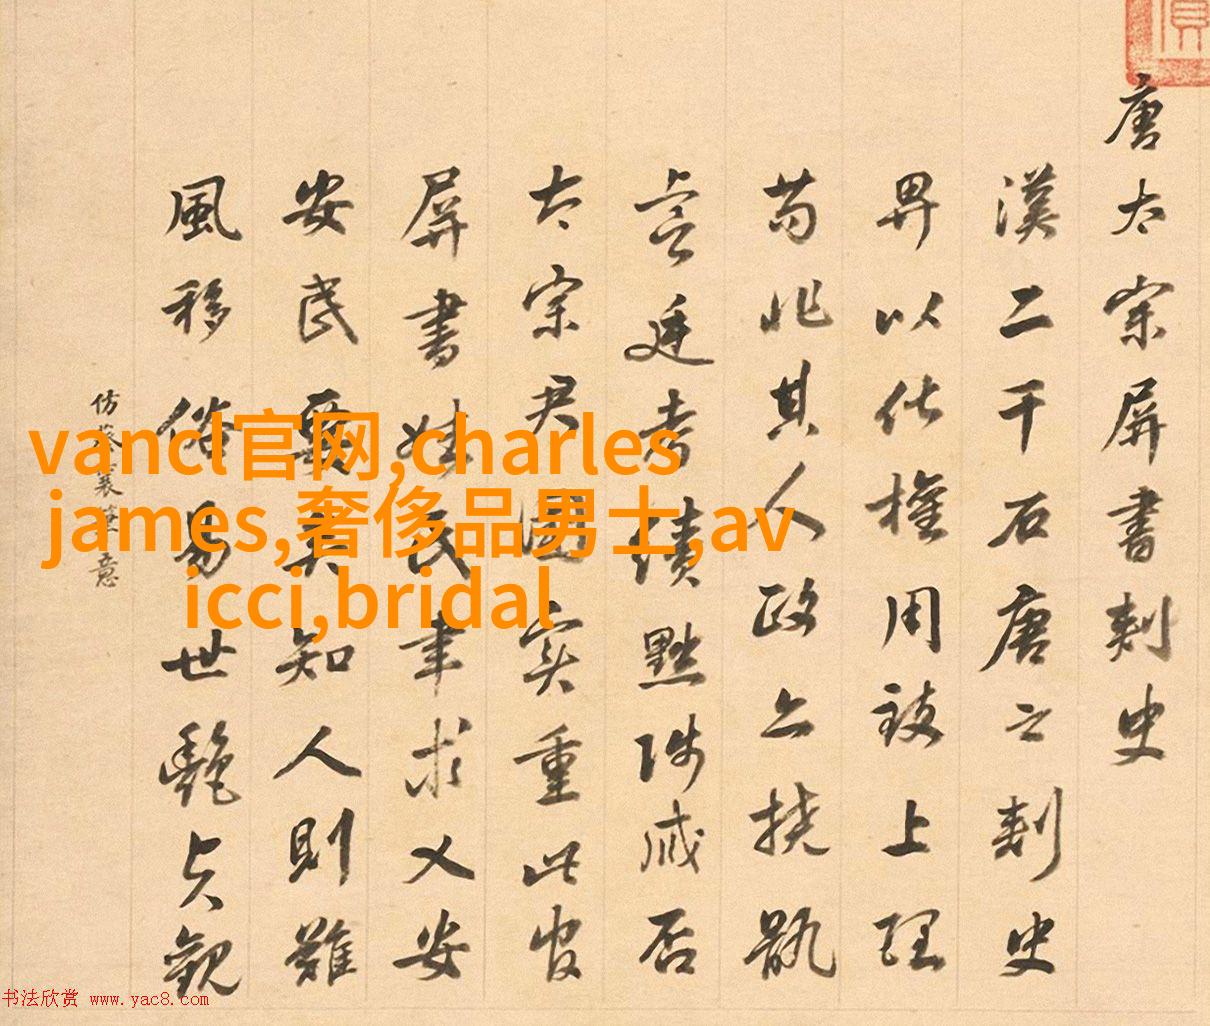 唐太宗屏書刺史
漢二千石唐之刺史
畀以化權用致上理
苟非其人政亦撓骫
虞廷考績黜陟臧否
太宗君國實重此官
屏書姓氏聿求乂安
安民要矣知人則難
風移俗易世艷貞觀
仿蔡襄筆意
vancl官网,charles
james,奢侈品男士,av
icci,bridal
书法欣赏 www.yac8.com